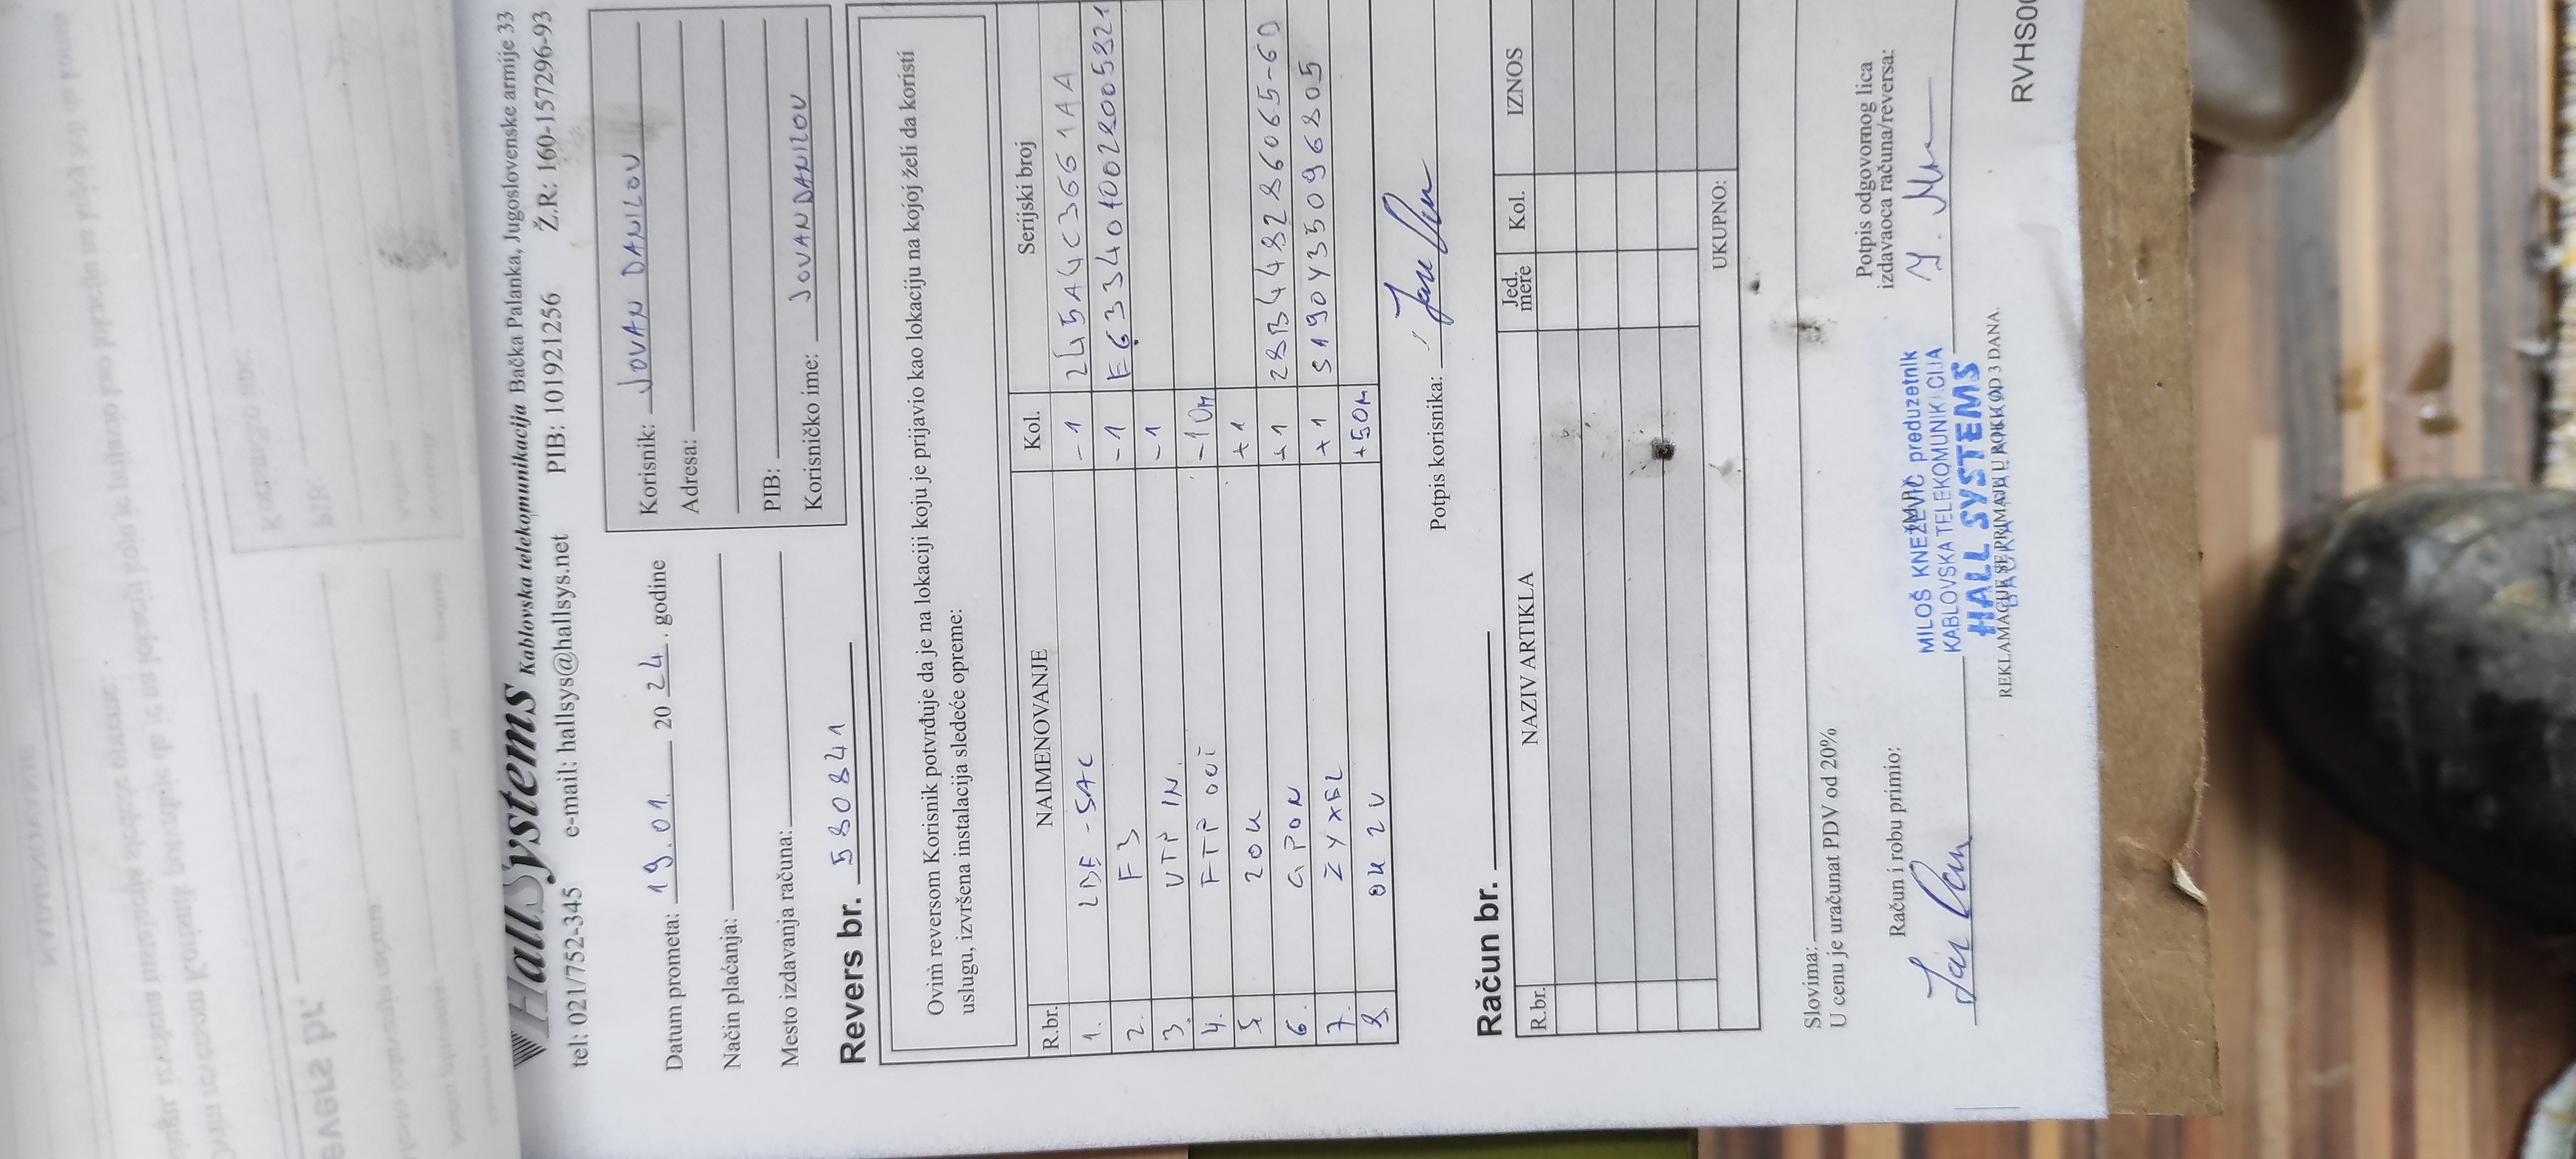 HallSystems Kablovska telekomunikacija Bačka Palanka, Jugoslovenske armije 33
tel: 021/752-345 e-mail: hallsys@hallsys.net PIB: 101921256 Ž.R: 160-157296-93
Datum prometa: 19.01. 20 24. godine
Način plaćanja:
Mesto izdavanja računa:
Korisnik: JOVAN DANILOV
Adresa:
PIB:
Korisničko ime: JOVANDANILOV
Revers br. 580841
Ovim reversom Korisnik potvrđuje da je na lokaciji koju je prijavio kao lokaciju na kojoj želi da koristi
uslugu, izvršena instalacija sledeće opreme:
R.br. NAIMENOVANJE Kol. Serijski broj
1. LBE-5AC -1 245A4C3661AA
2. F3 -1 E63334010028005821
3. UTP IN. -1
4. FTP OUT -10m
5. ZOK +1
6. GPON +1 28B448286065-60
7. ZYXEL +1 S190Y35096805
8. OK 2V +50m
Potpis korisnika:
Račun br.
R.br. NAZIV ARTIKLA Jed. mere Kol. IZNOS
UKUPNO:
Slovima:
U cenu je uračunat PDV od 20%
Račun i robu primio:
Potpis odgovornog lica
izdavaoca računa/reversa:
MILOŠ KNEŽEVIĆ preduzetnik
KABLOVSKA TELEKOMUNIKACIJA
HALL SYSTEMS
REKLAMACIJE SE PRIMAJU U ROKU OD 3 DANA.